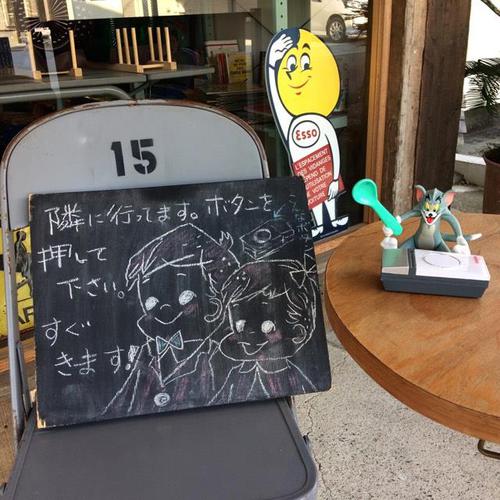 15
隣に行ってます。ボタンを
押して
下さい。
すぐ
きます!
こんなボ
Esso
L'ESPACEMENT
DES VIDANGES